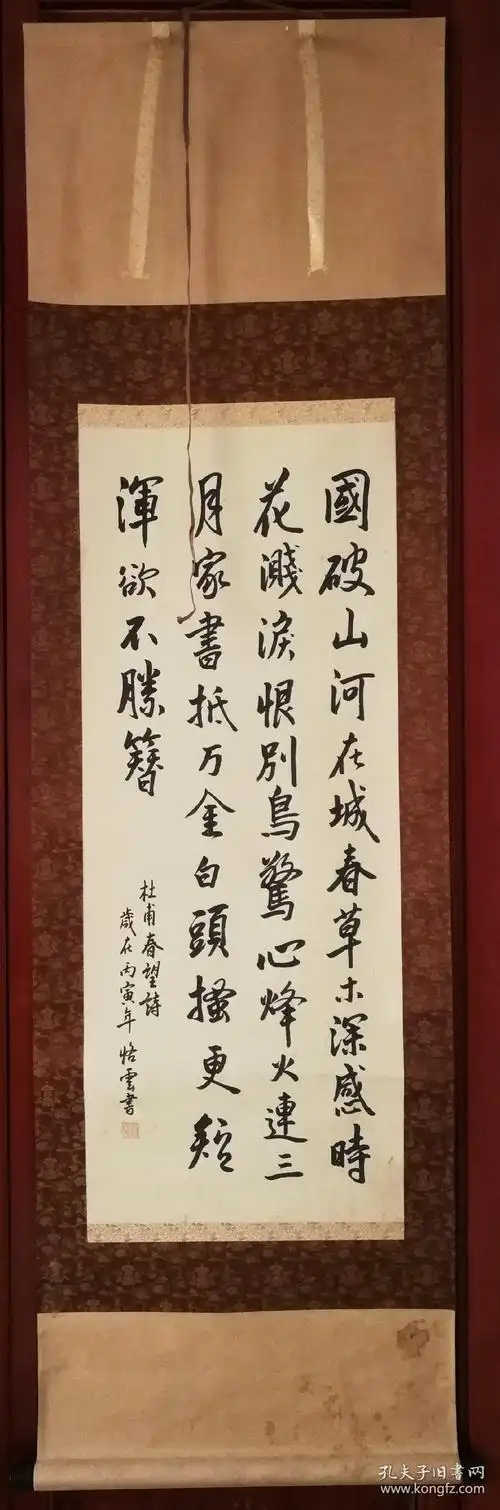 國破山河在城春草木深感時
花濺淚恨別鳥驚心烽火連三
月家書抵万金白頭搔更短
渾欲不勝簪
杜甫春望詩
歲在丙寅年悟雲書
孔夫子旧書网
kongfz.com